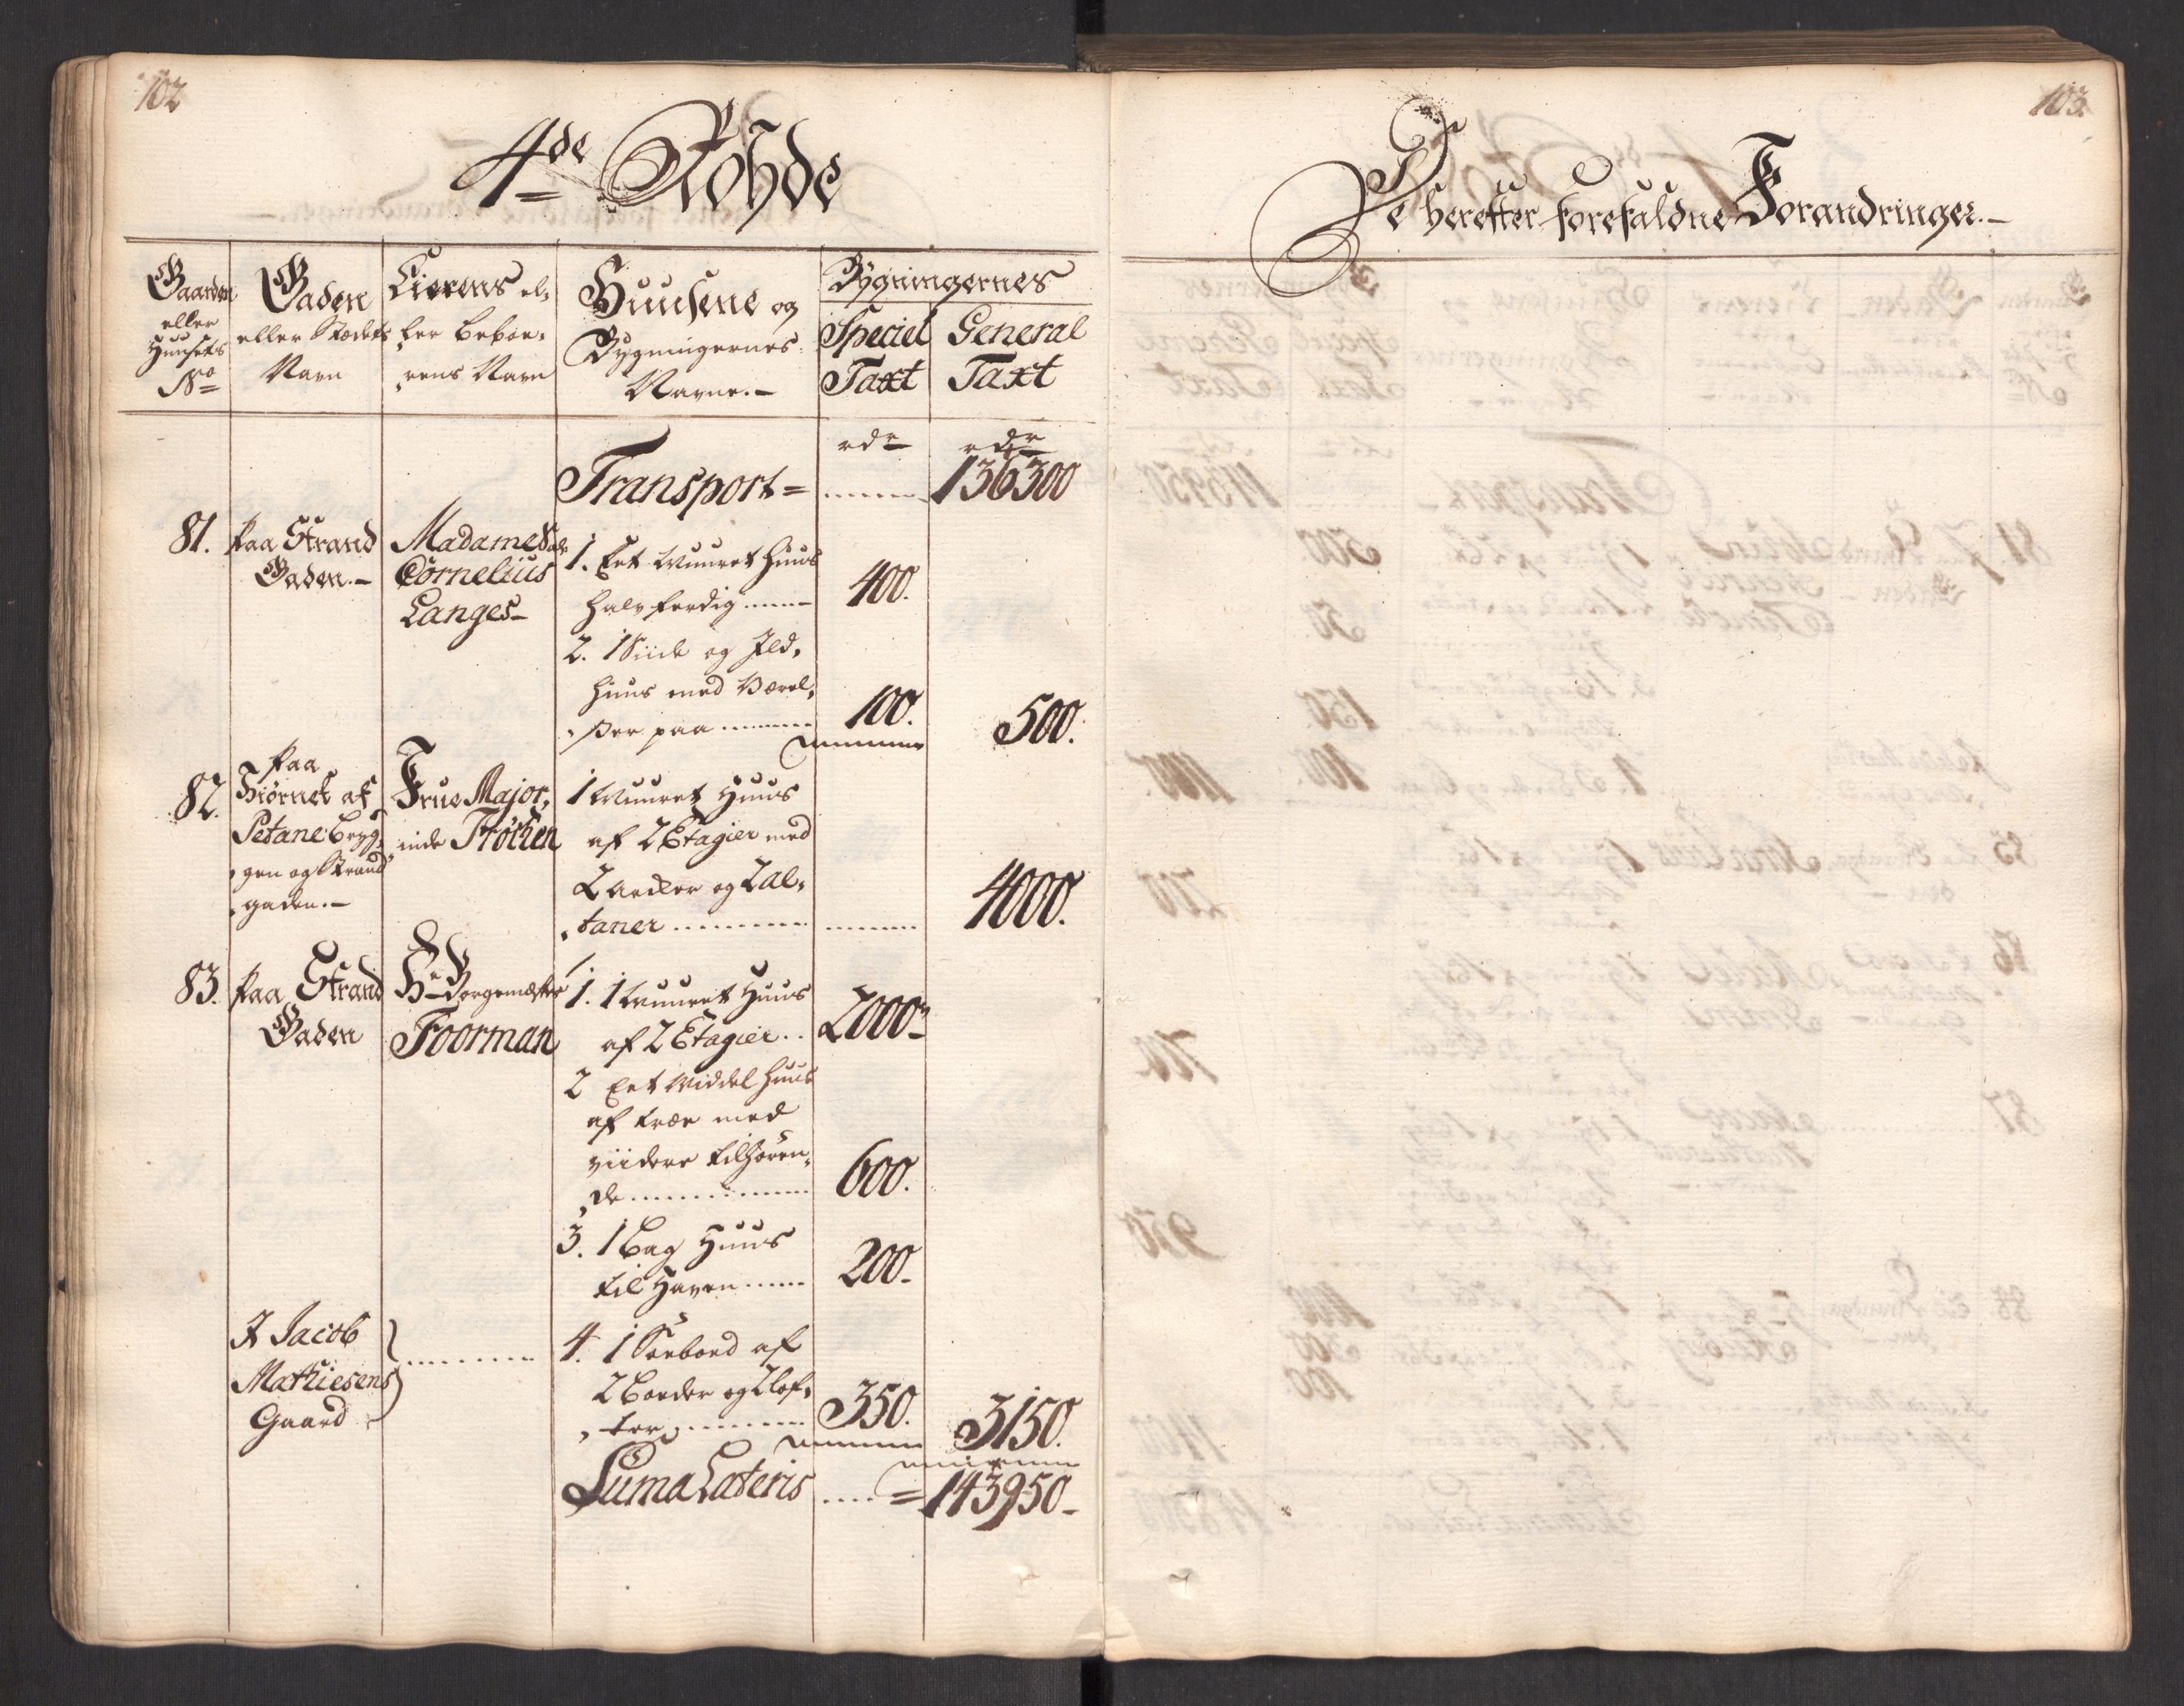 102
4de Rohde
Gaarden
eller
Huusets
No
Gaden
eller Stædets
Navn
Eierens el,
ler Beboe,
,rens Navn
Huusene og
Bygningernes
Navne.-
Bygningernes
Speciel
Taxt
General
Taxt
rdr
rdr
Transport = ........ 136300
81.
Paa Strand
Gaden.-
Madame Sal
Cornelius
Langes-
1. Eet Muuret Huus
halv færdig ...... 400.
2. 1 Siide og Ild,
Huus med Værel,
,ser paa ........ 100.
500.
82.
Paa
Hiørnet af
Petane Bryg,
,gen og Strand
,gaden.-
Frue Major,
inde Frølien
1 Muuret Huus
af 2 Etagier med
2 Arcker og 2 al,
,taner .......... ........ 4000.
83.
Paa Strand
Gaden
Hr Borgemester
Foorman
1. 1 Muuret Huus
af 2 Etagier .. 2000
2 Eet Middel Huus
af træe med
viidere tilhøren,
,de ............ 600.
3. 1 Bag Huus
til Haven ...... 200.
I Jacob
Mathiesens
Gaard
..........
4. 1 Søeboed af
2 Boeder og 2 lof,
,ter ........ 350.
3150.
Suma Lateris .... = 143950-
103.
De herefter forefaldne Forandringer.-